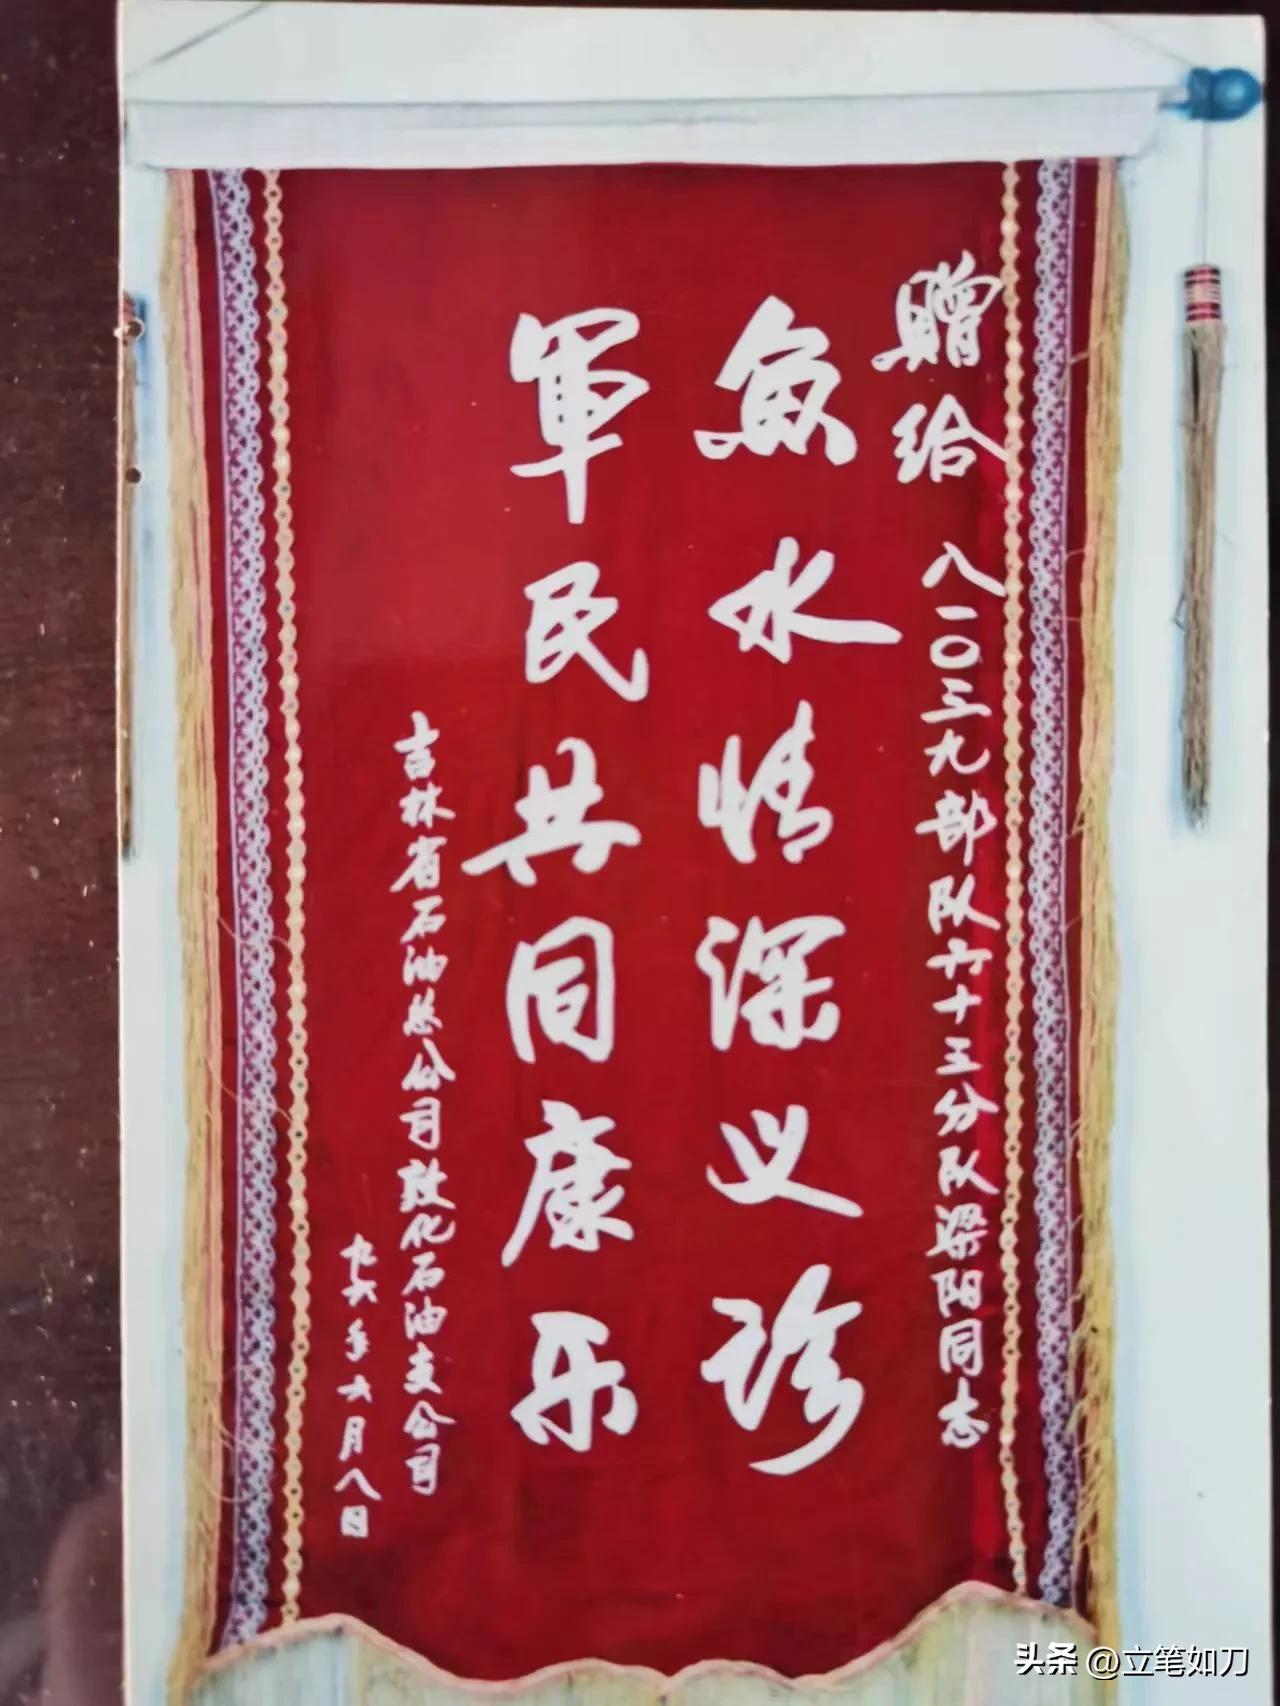 赠给 八一〇三九部队六十三分队梁阳同志
魚水情深义珍
軍民共同康乐
吉林省石油总公司敦化石油支公司
九六年六月八日
头条 @立笔如刀